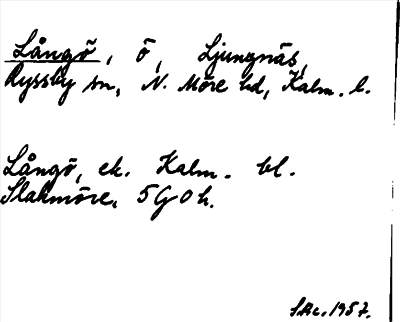 Långö, ö, Ljungnäs,
Ryssby sn, N. Möre hd, Kalm. l.
Långö, ek. Kalm. bl.
Slakmöre, 5 G 0 h.
SAc. 1957.